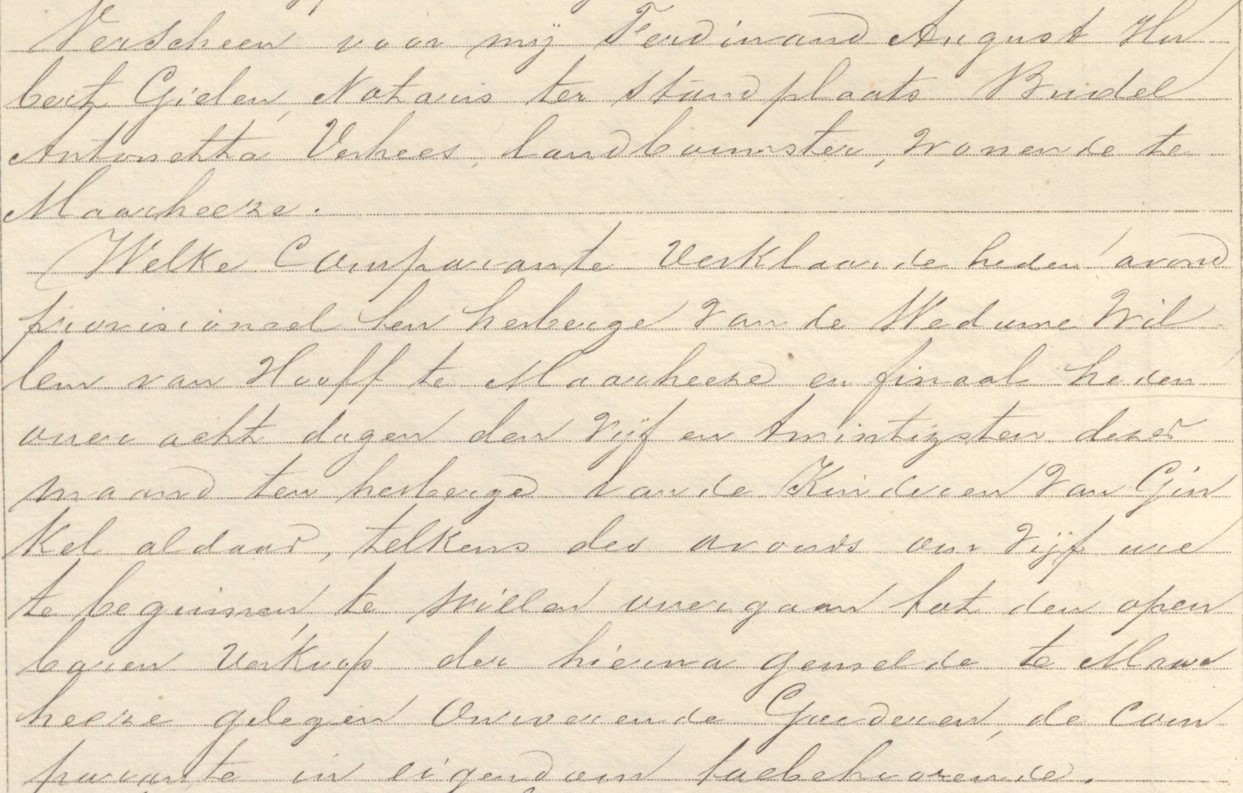 Verscheen voor mij Ferdinand August Hu
bert Gielen, Notaris ter standplaats Budel
Antonetta Verhees, landbouwster, wonende te
Maarheeze.
Welke Comparante verklaarde heden avond
provisioneel ten herberge van de Weduwe Wil
lem van Hooff te Maarheeze en finaal heden
over acht dagen den vijf en twintigsten dezer
maand ten herberge van de Kinderen van Gin
kel aldaar, telkens des avonds om vijf ure
te beginnen te willen overgaan tot den open
baren verkoop der hierna gemelde te Maar
heeze gelegen Onroerende Goederen, de com
parante in eigendom toebehoorende.